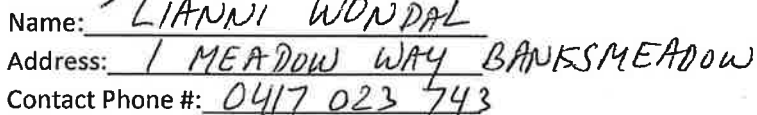 Name: LIANNI WONDAL
Address: 1 MEADOW WAY BANKSMEADOW
Contact Phone #: 0417 023 743